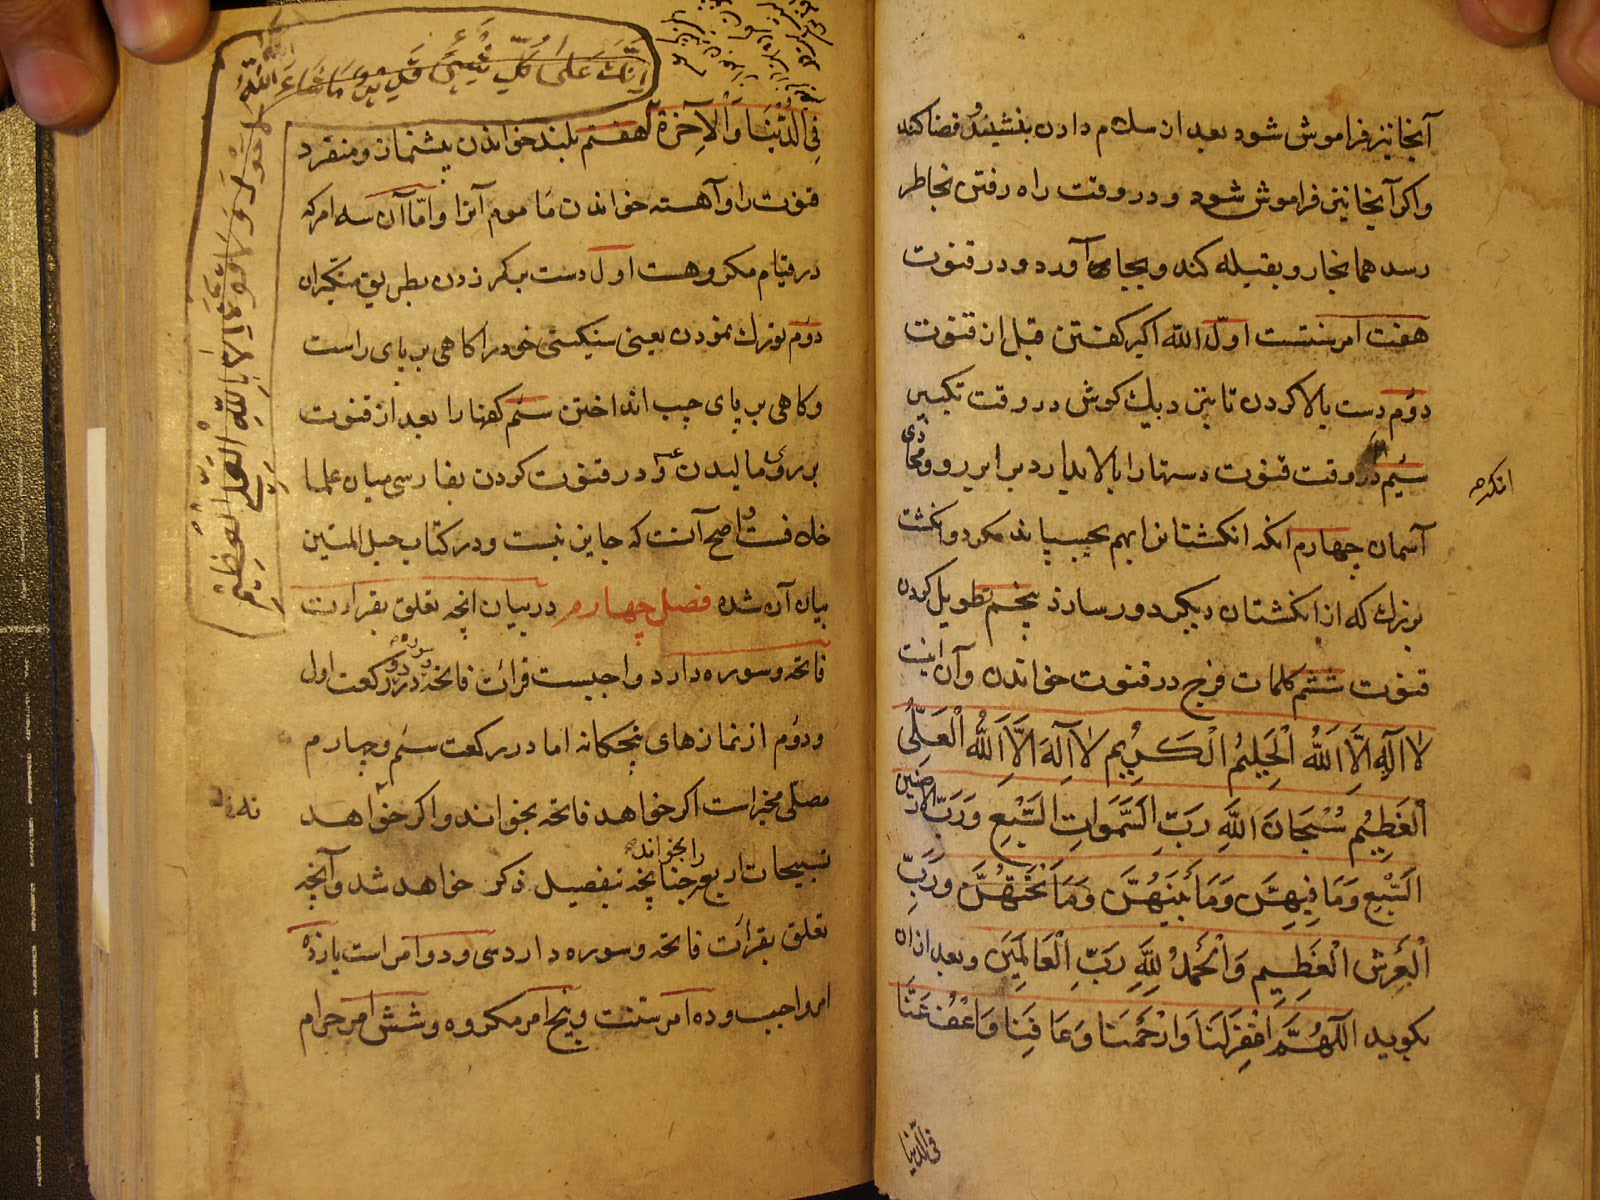 آنجا نیز فراموش شود بعد از سلام دادن بنشیند و قضا کند
و اکر آنجا نیز فراموش شود و در وقت راه رفتن بخاطر
رسد همانجا رو بقبله کند و بجای آورد و در قنوت
هفت امر سنتست اول الله اکبر کفتن قبل از قنوت
دوم دست بالا کردن تا بنزدیك کوش در وقت تکبیر
سیم در وقت قنوت دستها را بالا بدارد برابر رو و محاذی
آسمان چهارم انکه انکشتانرا بهم بچسپاند مکر دو انکشت
بزرك که از انکشتان دیکر دور سازد پنجم تطویل کردن
قنوت ششم کلمات فرج در قنوت خواندن و آن اینست
لا اله الا الله الحلیم الکریم لا اله الا الله العلی
العظیم سبحان الله رب السموات السبع و رب الارضین
السبع و ما فیهن و ما بینهن و ما تحتهن و رب
العرش العظیم و الحمد لله رب العالمین و بعد از ان
بکوید اللهم اغفر لنا و ارحمنا و عافنا و اعف عنا
فی الدنیا
انك على كل شیئ قدیر ما شاء الله
لا حول و لا قوة الا بالله العلی العظیم
فی الدنیا و الآخرة هفتم بلند خواندن پیشنماز و منفرد
قنوت را و آهسته خواندن ماموم آنرا و اما آن سه امر که
در قیام مکروهست اول دست بکمر زدن بطریق متکبران
دوم تورك نمودن یعنی سنکینی خود را کاهی بر پای راست
و کاهی بر پای چپ انداختن سیم کفها را بعد از قنوت
بر روی مالیدن و در قنوت کردن بفارسی میان علما
خلافست و اصح آنست که جایز نیست و در کتاب حبل المتین
بیان آن شده فصل چهارم در بیان انچه تعلق بقراءت
فاتحه و سوره دارد واجبست قرائت فاتحه و سوره در دو رکعت اول
و دوم از نمازهای پنجکانه اما در رکعت سیم و چهارم
مصلی مخیر است اکر خواهد فاتحه بخواند و اکر خواهد
تسبیحات اربع را بخواند چنانچه بتفصیل ذکر خواهد شد و آنچه
تعلق بقرائت فاتحه و سوره دارد سی و دو امر است یازده
امر واجب و ده امر سنت و پنج امر مکروه و شش امر حرام